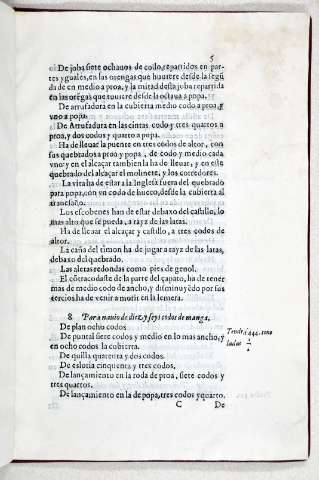 5
De joba siete ochauos de codo, repartidos en par-
tes yguales, en las orengas que huuiere desde la segũ
da de en medio a proa, y la mitad desta joba repartida
en las orẽgas que huuiere desde la octaua a popa.
De arrufadura en la cubierta medio codo a proa, y
vno a popa.
De Arrufadura en las cintas codo y tres quartos a
proa, y dos codos y quarto a popa.
Ha de lleuar la puente en tres codos de altor, con
sus quebrados a proa y popa, de codo y medio cada
vno y en el alcaçar tambien la ha de lleuar, y en este
quebrado del alcaçar el molinete, y los corredores.
La vita ha de estar a la Inglesa fuera del quebrado
para popa, con vn codo de hueco, desde la cubierta al
Los escobenes han de estar debaxo del castillo, lo
mas alto que se pueda, a rayz de las latas.
Ha de lleuar el alcaçar y castillo, a tres codos de
altor.
La caña del timon ha de jugar a rayz de las latas,
debaxo del quebrado.
Las aletas redondas como pies de genol.
El cõtracodaste en la parte del çapato, ha de tener
mas de medio codo de ancho, y disminuyẽdo por sus
tercios ha de venir a morir en la lemera.
8 Para nauio de diez, y seys codos de manga.
De plan ocho codos.
De puntal siete codos y medio en lo mas ancho, y
en ocho codos la cubierta.
De quilla quarenta y dos codos.
De esloria cinquenta y tres codos.
De lançamiento en la roda de proa, siete codos y
tres quartos.
De lançamiento en la de popa, tres codos y quarto.
C De
Tendrà 444. tone
ladas